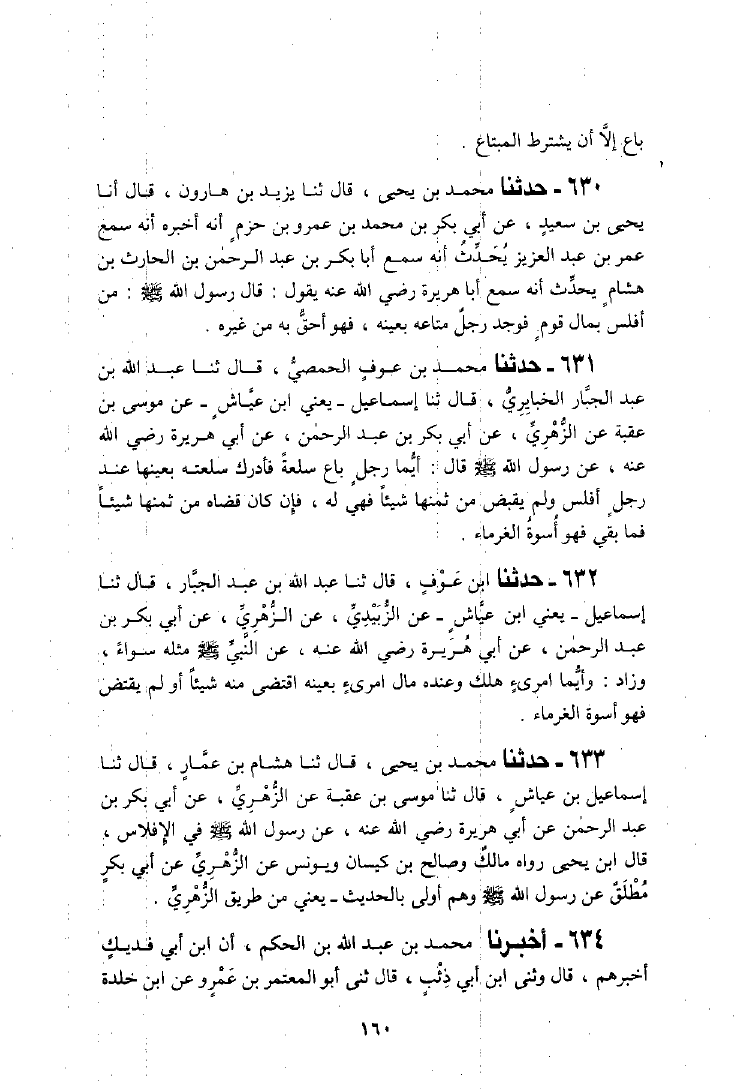 باع إلاَّ أن يشترط المبتاع .
٦٣٠ - حدثنا محمد بن يحيى ، قال ثنا يزيد بن هارون ، قال أنا
يحيى بن سعيدٍ ، عن أبي بكر بن محمد بن عمرو بن حزمٍ أنه أخبره أنه سمع
عمر بن عبد العزيز يُحَدِّثُ أنه سمع أبا بكر بن عبد الرحمٰن بن الحارث بن
هشامٍ يحدِّث أنه سمع أبا هريرة رضي الله عنه يقول : قال رسول الله ﷺ : من
أفلس بمال قومٍ فوجد رجلٌ متاعه بعينه ، فهو أحقُّ به من غيره .
٦٣١ - حدثنا محمد بن عوفٍ الحمصيُّ ، قال ثنا عبد الله بن
عبد الجبَّار الخبايِريُّ ، قال ثنا إسماعيل - يعني ابن عيَّاشٍ - عن موسى بن
عقبة عن الزُّهْريِّ ، عن أبي بكر بن عبد الرحمٰن ، عن أبي هريرة رضي الله
عنه ، عن رسول الله ﷺ قال : أيُّما رجلٍ باع سلعةً فأدرك سلعته بعينها عند
رجلٍ أفلس ولم يقبض من ثمنها شيئاً فهي له ، فإن كان قضاه من ثمنها شيئاً
فما بقي فهو أُسوةُ الغرماء .
٦٣٢ - حدثنا ابن عَوْفٍ ، قال ثنا عبد الله بن عبد الجبَّار ، قال ثنا
إسماعيل - يعني ابن عيَّاشٍ - عن الزُّبَيْدِيِّ ، عن الزُّهْرِيِّ ، عن أبي بكر بن
عبد الرحمٰن ، عن أبي هُرَيرة رضي الله عنه ، عن النَّبيِّ ﷺ مثله سواءً ،
وزاد : وأيُّما امرىءٍ هلك وعنده مال امرىءٍ بعينه اقتضى منه شيئاً أو لم يقتض
فهو أسوة الغرماء .
٦٣٣ - حدثنا محمد بن يحيى ، قال ثنا هشام بن عمَّارٍ ، قال ثنا
إسماعيل بن عياشٍ ، قال ثنا موسى بن عقبة عن الزُّهْرِيِّ ، عن أبي بكر بن
عبد الرحمٰن عن أبي هريرة رضي الله عنه ، عن رسول الله ﷺ في الإفلاس ،
قال ابن يحيى رواه مالكٌ وصالح بن كيسان ويونس عن الزُّهْرِيِّ عن أبي بكرٍ
مُطْلَقٌ عن رسول الله ﷺ وهم أولى بالحديث - يعني من طريق الزُّهْرِيِّ .
٦٣٤ - أخبرنا محمد بن عبد الله بن الحكم ، أن ابن أبي فديكٍ
أخبرهم ، قال وثنى ابن أبي ذِئْبٍ ، قال ثنى أبو المعتمر بن عَمْرٍو عن ابن خلدة
١٦٠